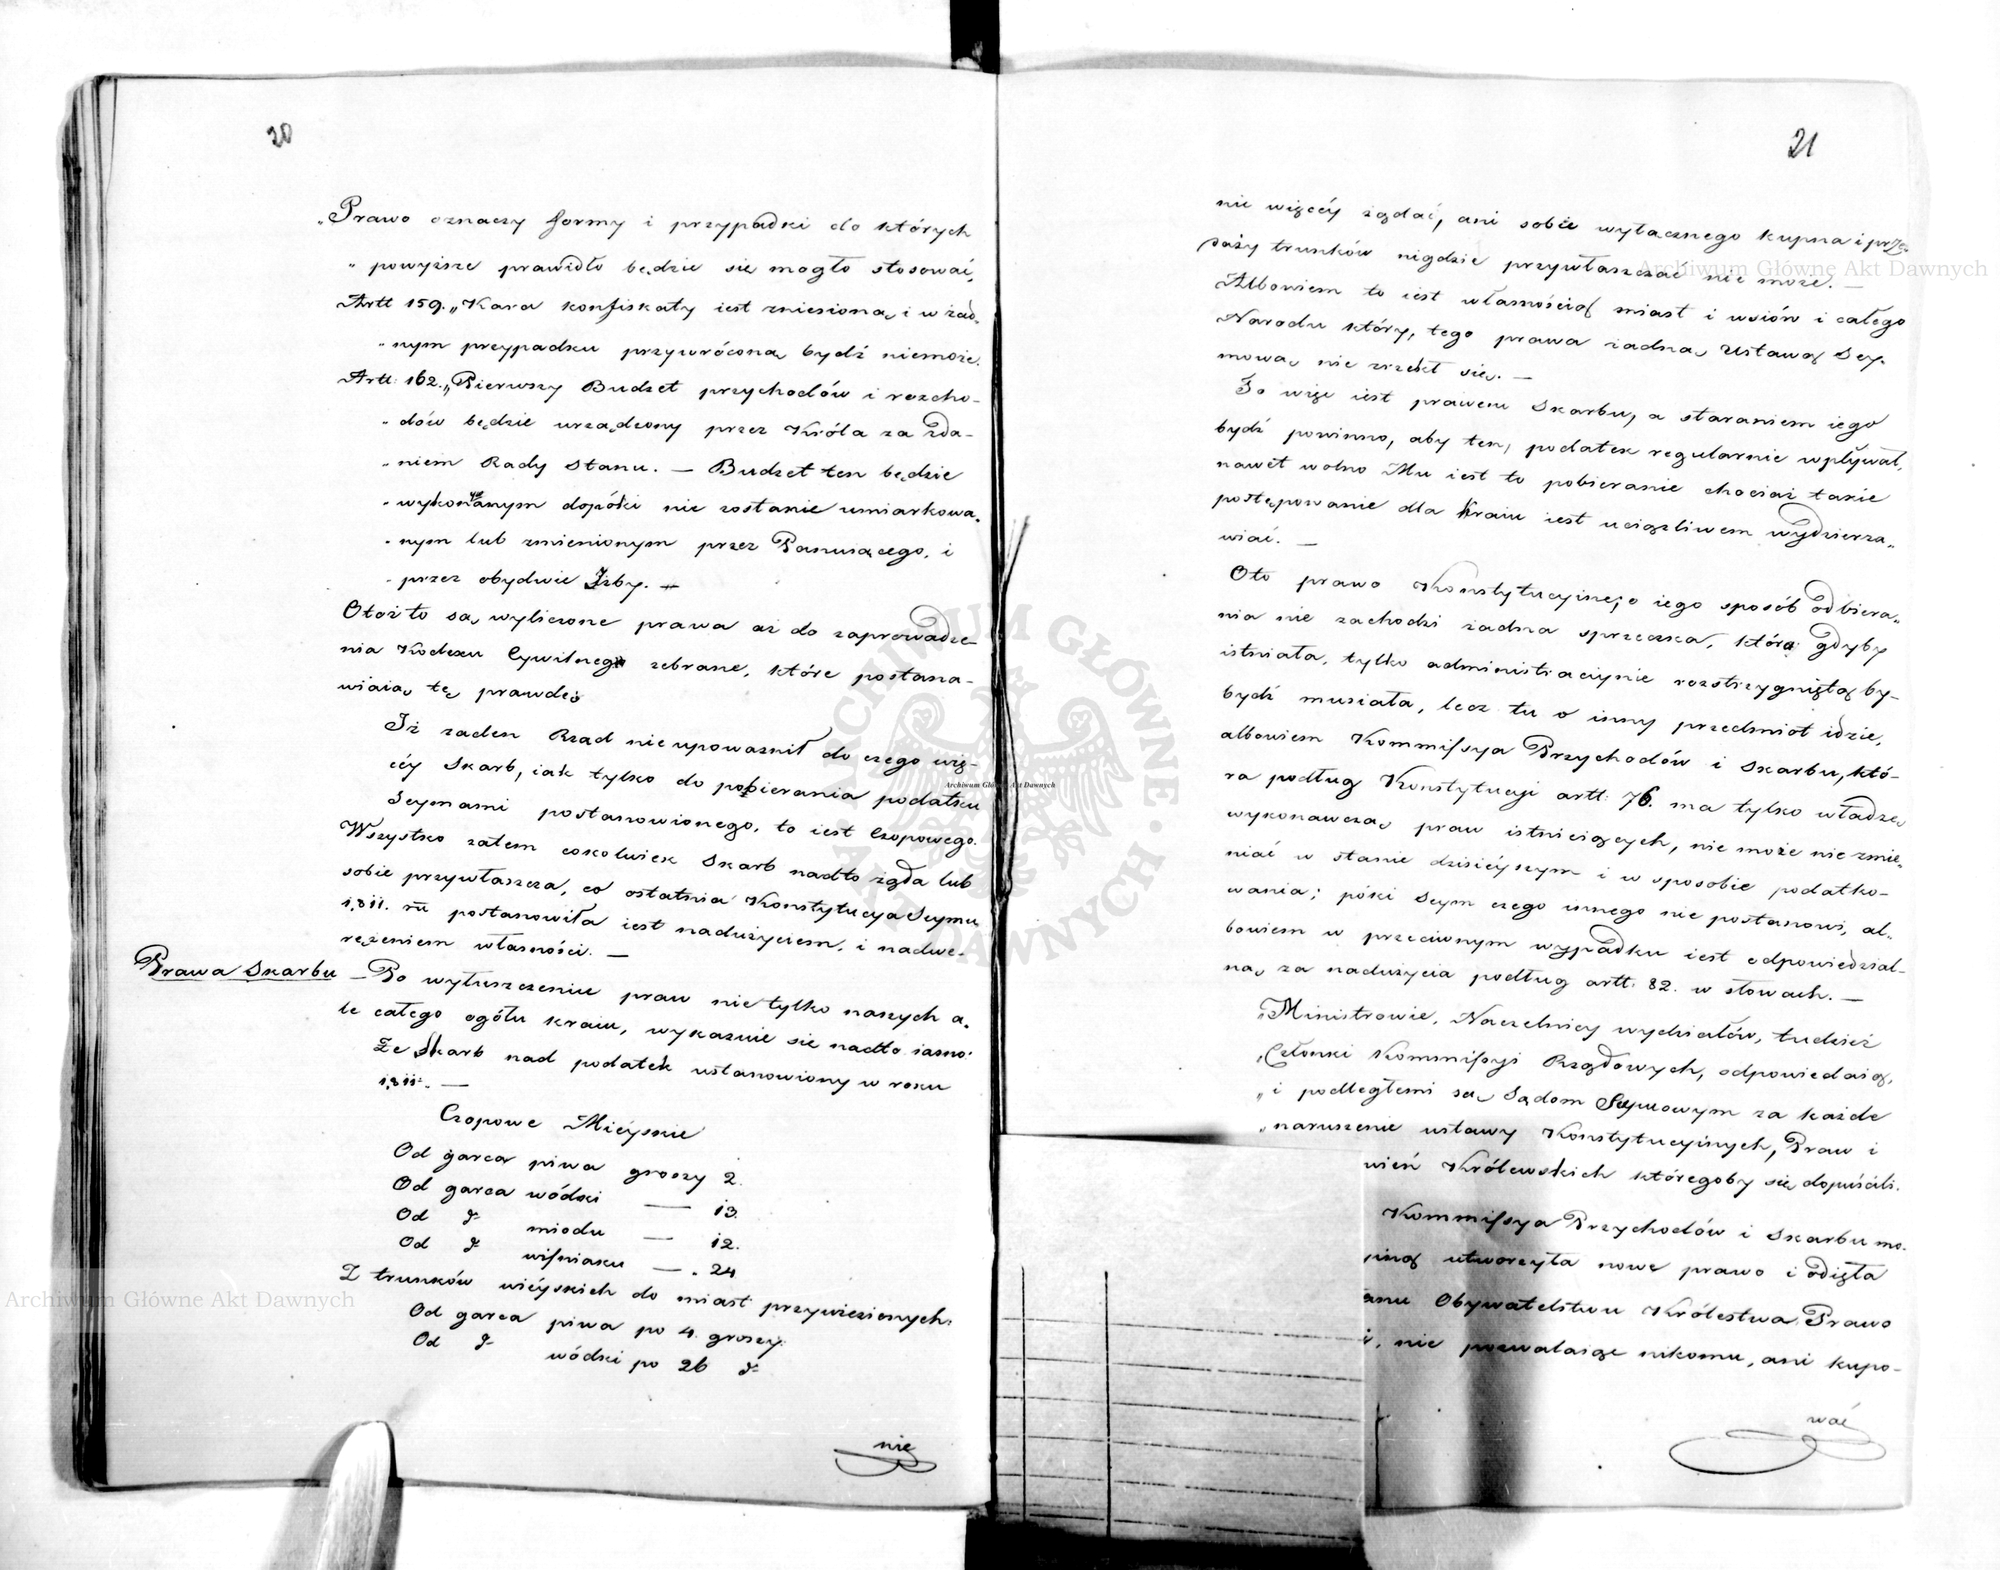 20
„Prawo oznaczy formy i przypadki do których
„ powyższe prawidło będzie się mogło stosować,
Artt 159. „Kara konfiskaty iest zniesioną i w żad„
„ nym przypadku przywróconą bydź niemoże.
Artt: 162. „Pierwszy Budżet przychodów i rozcho-
„ dów będzie urządzony przez Króla za zda-
„ niem Rady Stanu. — Budżet ten będzie
„ wykonywanym dopóki nie zostanie umiarkowa„
„ nym lub zmienionym przez Panuiącego, i
„ przez obydwie Izby. —
Otoż to są wyliczone prawa aż do zaprowadze
nia Kodexu Cywilnego zebrane, które postana-
wiaią tę prawdę
Iż żaden Rząd nie upoważnił do czego wię-
céy Skarb, iak tylko do pobierania podatku
Seymami postanowionego, to iest Czopowego.
Wszystko zatem cokolwiek Skarb nadto żąda lub
sobie przywłaszcza, co ostatnia Konstytucya Seymu
1811. ru postanowiła iest nadużyciem, i nadwe-
rężeniem własności. —
Prawa Skarbu — Po wyłuszczeniu praw nie tylko naszych a„
le całego ogółu kraiu, wykazuie się nadto iasno:
Że Skarb nad podatek ustanowiony w roku
1811. —
Czopowe Mieyskie
Od garca piwa groszy 2.
Od garca wódki — 13.
Od d° miodu — 12.
Od d° wiśniaku — „ 24
Z trunków wieyskich do miast przywiezionych:
Od garca piwa po 4. groszy.
Od d° wódki po 26 d°
nie
21
nic więcéy żądać, ani sobie wyłącznego kupna i prze„
daży trunków nigdzie przywłaszczać nie może. —
Albowiem to iest własnością miast i wsiów i całego
Narodu który, tego prawa żadną Ustawą Sey„
mową nie zrzekł się. —
To więc iest prawem Skarbu, a staraniem iego
bydź powinno, aby ten, podatek regularnie wpływał,
nawet wolno Mu iest to pobieranie chociaż takie
postępowanie dla Kraiu iest uciążliwem wydzierża„
wiać. —
Oto prawo Konstytucyine, o iego sposób odbiera„
nia nie zachodzi żadna sprzeczka, która gdyby
istniała, tylko administracyinie rozstrzygniętą by-
bydź musiała, lecz tu o inny przedmiot idzie,
albowiem Kommissya Przychodów i Skarbu, któ-
ra podług Konstytucyi artt: 76. ma tylko władzę
wykonawczą praw istnieiących, nie może nic zmie„
niać w stanie dzisiéyszym i w sposobie podatko-
wania; póki Seym czego innego nie postanowi, al„
bowiem w przeciwnym wypadku iest odpowiedzial-
ną za nadużycia podług artt: 82. w słowach. —
„Ministrowie, Naczelnicy wydziałów, tudzież
„Członki Kommissyi Rządowych, odpowiedaią,
„ i podległemi są Sądom Seymowym za każde
„ naruszenie ustawy Konstytucyinych, Praw i
wień Królewskich któregoby się dopuścili.
Kommissya Przychodów i Skarbu mo„
utworzyła nowe prawo i odięła
anu Obywatelstwu Królestwa Prawo
nie pozwalaiąc nikomu, ani kupo-
wać
Archiwum Główne Akt Dawnych
Archiwum Główne Akt Dawnych
Archiwum Główne Akt Dawnych
ARCHIWUM GŁÓWNE AKT DAWNYCH